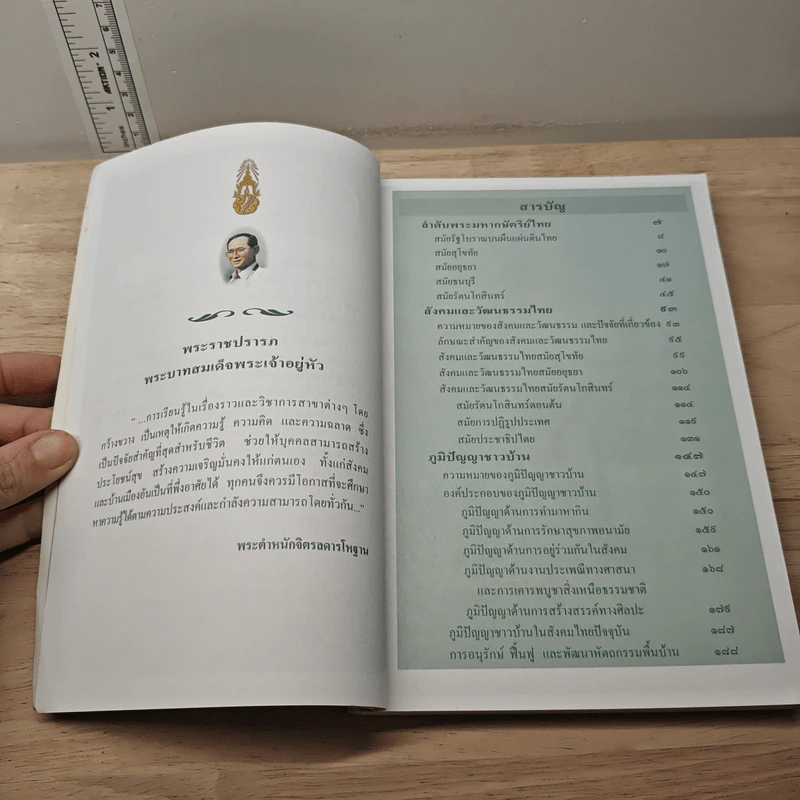 พระราชปรารภ
พระบาทสมเด็จพระเจ้าอยู่หัว
" ...การเรียนรู้ในเรื่องราวและวิชาการสาขาต่างๆ โดย
กว้างขวาง เป็นเหตุให้เกิดความรู้ ความคิด และความฉลาด ซึ่ง
เป็นปัจจัยสำคัญที่สุดสำหรับชีวิต ช่วยให้บุคคลสามารถสร้าง
ประโยชน์สุข สร้างความเจริญมั่นคงให้แก่ตนเอง ทั้งแก่สังคม
และบ้านเมืองอันเป็นที่พึ่งอาศัยได้ ทุกคนจึงควรมีโอกาสที่จะศึกษา
หาความรู้ได้ตามความประสงค์และกำลังความสามารถโดยทั่วกัน..."
พระตำหนักจิตรลดารโหฐาน
สารบัญ
ลำดับพระมหากษัตริย์ไทย ๗
สมัยรัฐโบราณบนผืนแผ่นดินไทย ๘
สมัยสุโขทัย ๑๐
สมัยอยุธยา ๑๗
สมัยธนบุรี ๔๑
สมัยรัตนโกสินทร์ ๔๕
สังคมและวัฒนธรรมไทย ๙๓
ความหมายของสังคมและวัฒนธรรม และปัจจัยที่เกี่ยวข้อง ๙๓
ลักษณะสำคัญของสังคมและวัฒนธรรมไทย ๙๕
สังคมและวัฒนธรรมไทยสมัยสุโขทัย ๙๙
สังคมและวัฒนธรรมไทยสมัยอยุธยา ๑๐๖
สังคมและวัฒนธรรมไทยสมัยรัตนโกสินทร์ ๑๑๔
สมัยรัตนโกสินทร์ตอนต้น ๑๑๔
สมัยการปฏิรูปประเทศ ๑๑๙
สมัยประชาธิปไตย ๑๓๑
ภูมิปัญญาชาวบ้าน ๑๔๗
ความหมายของภูมิปัญญาชาวบ้าน ๑๔๗
องค์ประกอบของภูมิปัญญาชาวบ้าน ๑๕๐
ภูมิปัญญาด้านการทำมาหากิน ๑๕๐
ภูมิปัญญาด้านการรักษาสุขภาพอนามัย ๑๕๙
ภูมิปัญญาด้านการอยู่ร่วมกันในสังคม ๑๖๑
ภูมิปัญญาด้านงานประเพณีทางศาสนา ๑๖๘
และการเคารพบูชาสิ่งเหนือธรรมชาติ
ภูมิปัญญาด้านการสร้างสรรค์ทางศิลปะ ๑๗๙
ภูมิปัญญาชาวบ้านในสังคมไทยปัจจุบัน ๑๘๗
การอนุรักษ์ ฟื้นฟู และพัฒนาหัตถกรรมพื้นบ้าน ๑๘๘
inches 1 AKTION 2